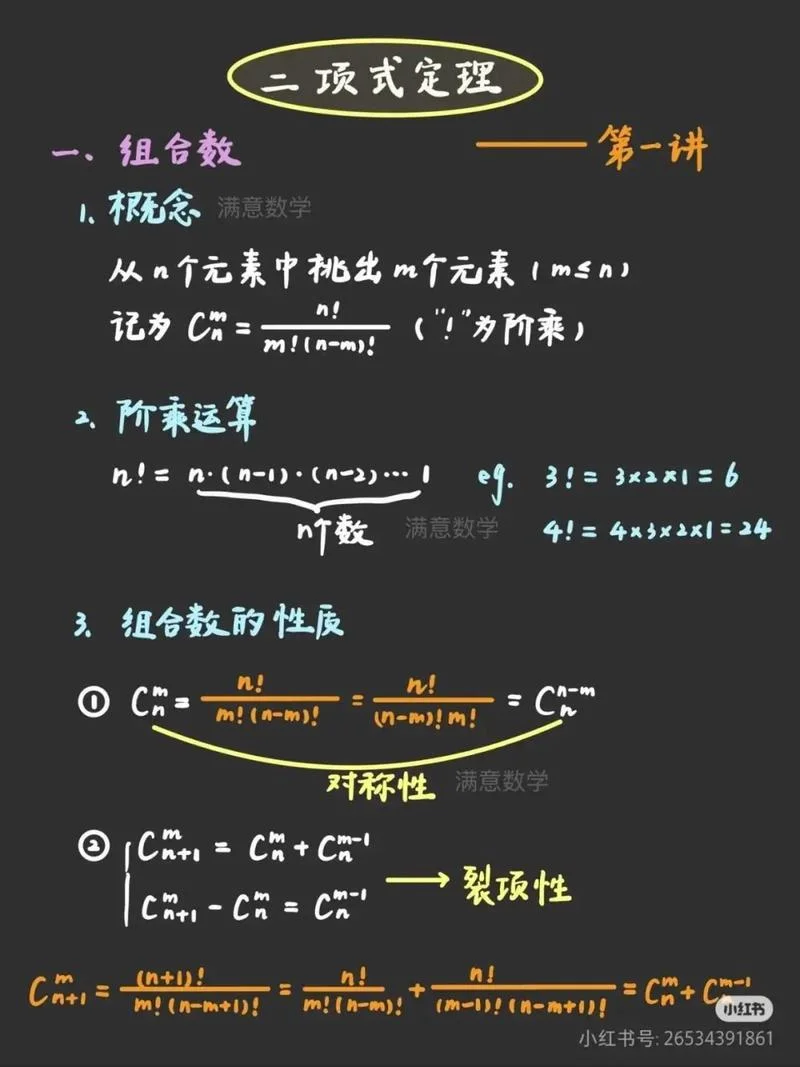 二项式定理
一、组合数 —— 第一讲
1、概念 满意数学
从n个元素中挑出m个元素(m≤n)
记为 C_n^m = n!/(m!(n-m)!) ("!"为阶乘)
2、阶乘运算
n! = n·(n-1)·(n-2)…1 eg. 3! = 3×2×1 = 6
n个数 满意数学 4! = 4×3×2×1 = 24
3、组合数的性质
① C_n^m = n!/(m!(n-m)!) = n!/((n-m)!m!) = C_n^{n-m}
对称性 满意数学
② C_{n+1}^m = C_n^m + C_n^{m-1}
C_{n+1}^m - C_n^m = C_n^{m-1} → 裂项性
C_{n+1}^m = (n+1)!/(m!(n-m+1)!) = n!/(m!(n-m)!) + n!/((m-1)!(n-m+1)!) = C_n^m + C_n^{m-1}
小红书
小红书号: 26534391861